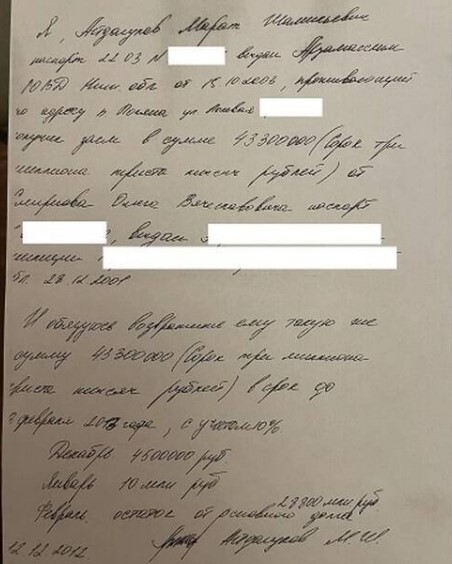 Я, Асдалуков Марат Шамильевич
паспорт 22 03 N выдан Арзамасским
РОВД Ниж. обл от 15.10.2003, проживающий
по адресу п Поляна ул Полевая
получил заем в сумме 43300000 (Сорок три
миллиона триста тысяч рублей) от
Смирнова Олега Вячеславовича паспорт
, выдан
милиции
28.12.2001
И обязуюсь возвратить ему такую же
сумму 43300000 (Сорок три миллиона
триста тысяч рублей) в срок до
февраля 2013 года, с учетом 10%
Декабрь 4500000 руб.
Январь 10 млн руб
28800 млн руб.
Февраль остаток от основного долга
12.12.2012. Асдалуков М.Ш.